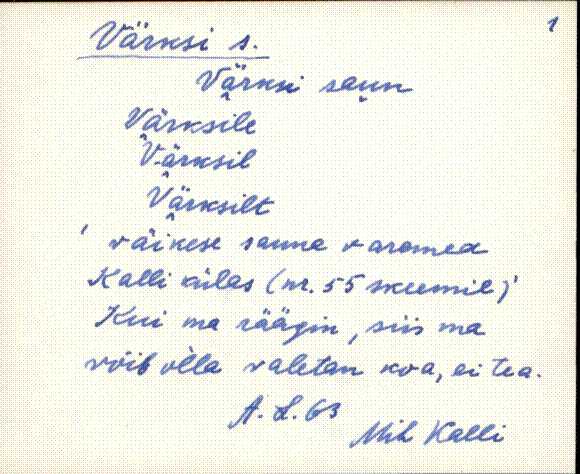 1
Värksi s.
Värksi saun
Värksile
Värksil
Värksilt
' väikese sauna varemed
Kalli külas (nr. 55 skeemil)'
Kui ma räägin, siis ma
võib olla valetan koa, ei tea.
A. L. 63
Mih Kalli